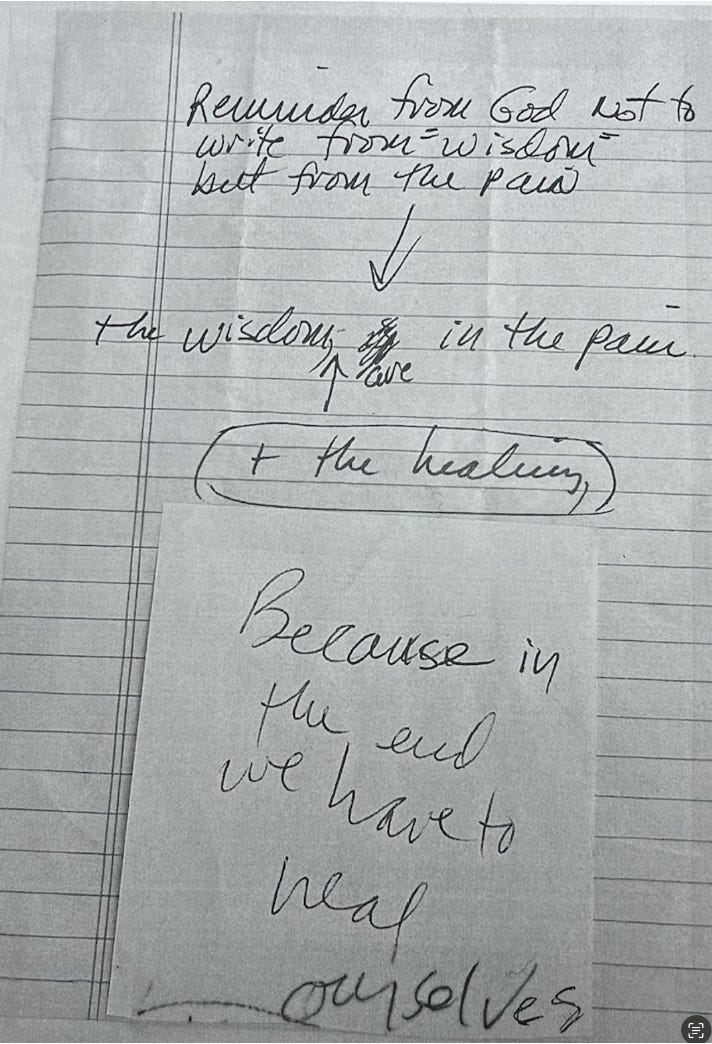 Reminder from God not to
write from "wisdom"
but from the pain
the wisdom, in the pain.
are
+ the healing,
Because in
the end
we have to
heal
ourselves